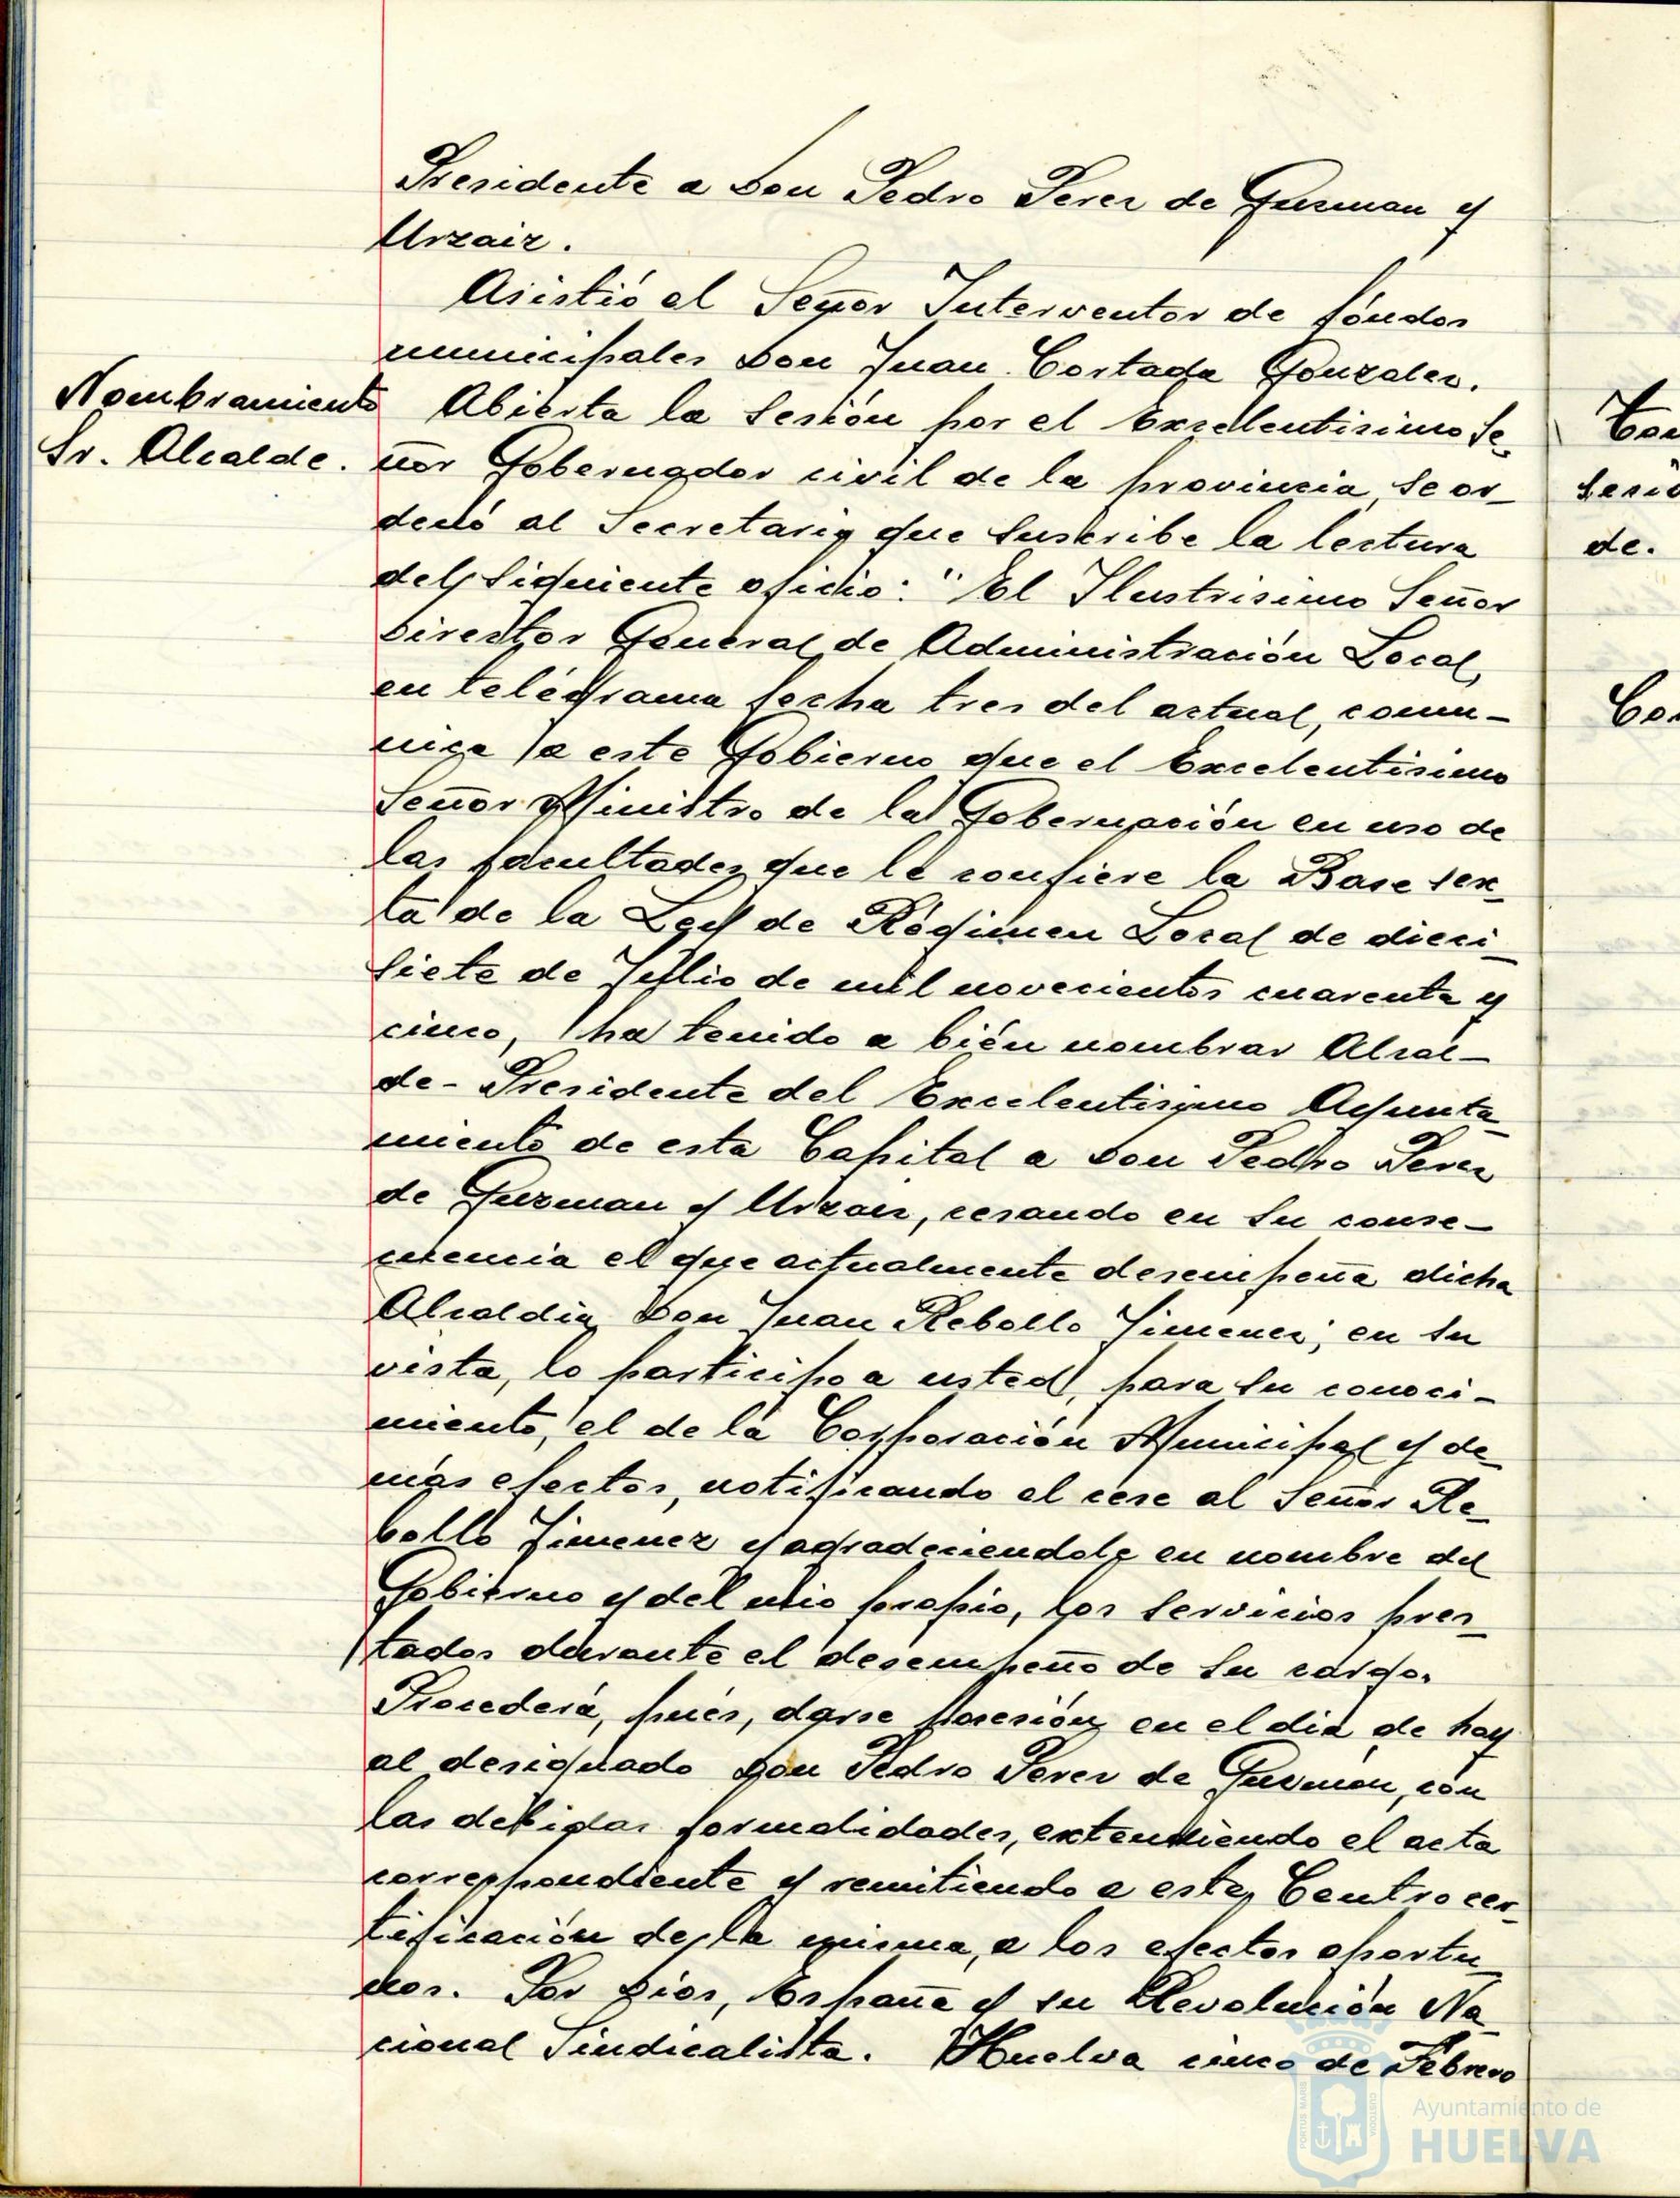 Presidente a Don Pedro Perez de Guzman y
Urzaiz.
Asistió el Señor Interventor de fóndos
municipales Don Juan Cortada Gonzalez.
Nombramiento
Sr. Alcalde.
Abierta la sesión por el Excelentisimo Se-
ñor Gobernador civil de la provincia, se or-
denó al Secretario que suscribe la lectura
del siguiente oficio: "El Ilustrisimo Señor
Director General de Administración Local,
en telégrama fecha tres del actual, comu-
nica a este Gobierno que el Excelentisimo
Señor Ministro de la Gobernación en uso de
las facultades que le confiere la Base sex-
ta de la Ley de Régimen Local de dieci-
siete de Julio de mil novecientos cuarenta y
cinco, ha tenido a bién nombrar Alcal-
de-Presidente del Excelentisimo Ayunta-
miento de esta Capital a Don Pedro Perez
de Guzman y Urzaiz, cesando en su conse-
cuencia el que actualmente desempeña dicha
Alcaldia Don Juan Rebollo Jimenez; en su
vista, lo participo a usted, para su conoci-
miento, el de la Corporación Municipal y de-
más efectos, notificando el cese al Señor Re-
bollo Jimenez y agradeciendole en nombre del
Gobierno y del mio propio, los servicios pres-
tados durante el desempeño de su cargo.
Procederá, pués, darse posesión en el dia de hoy
al designado Don Pedro Perez de Guzmán, con
las debidas formalidades, extendiendo el acta
correspondiente y remitiendo a este Centro cer-
tificación de la misma, a los efectos oportu-
nos. Por Dios, España y su Revolución Na-
cional Sindicalista. Huelva cinco de Febrero
sesió
de.
PORTUS MARIS
CUSTODIA
Ayuntamiento de
HUELVA